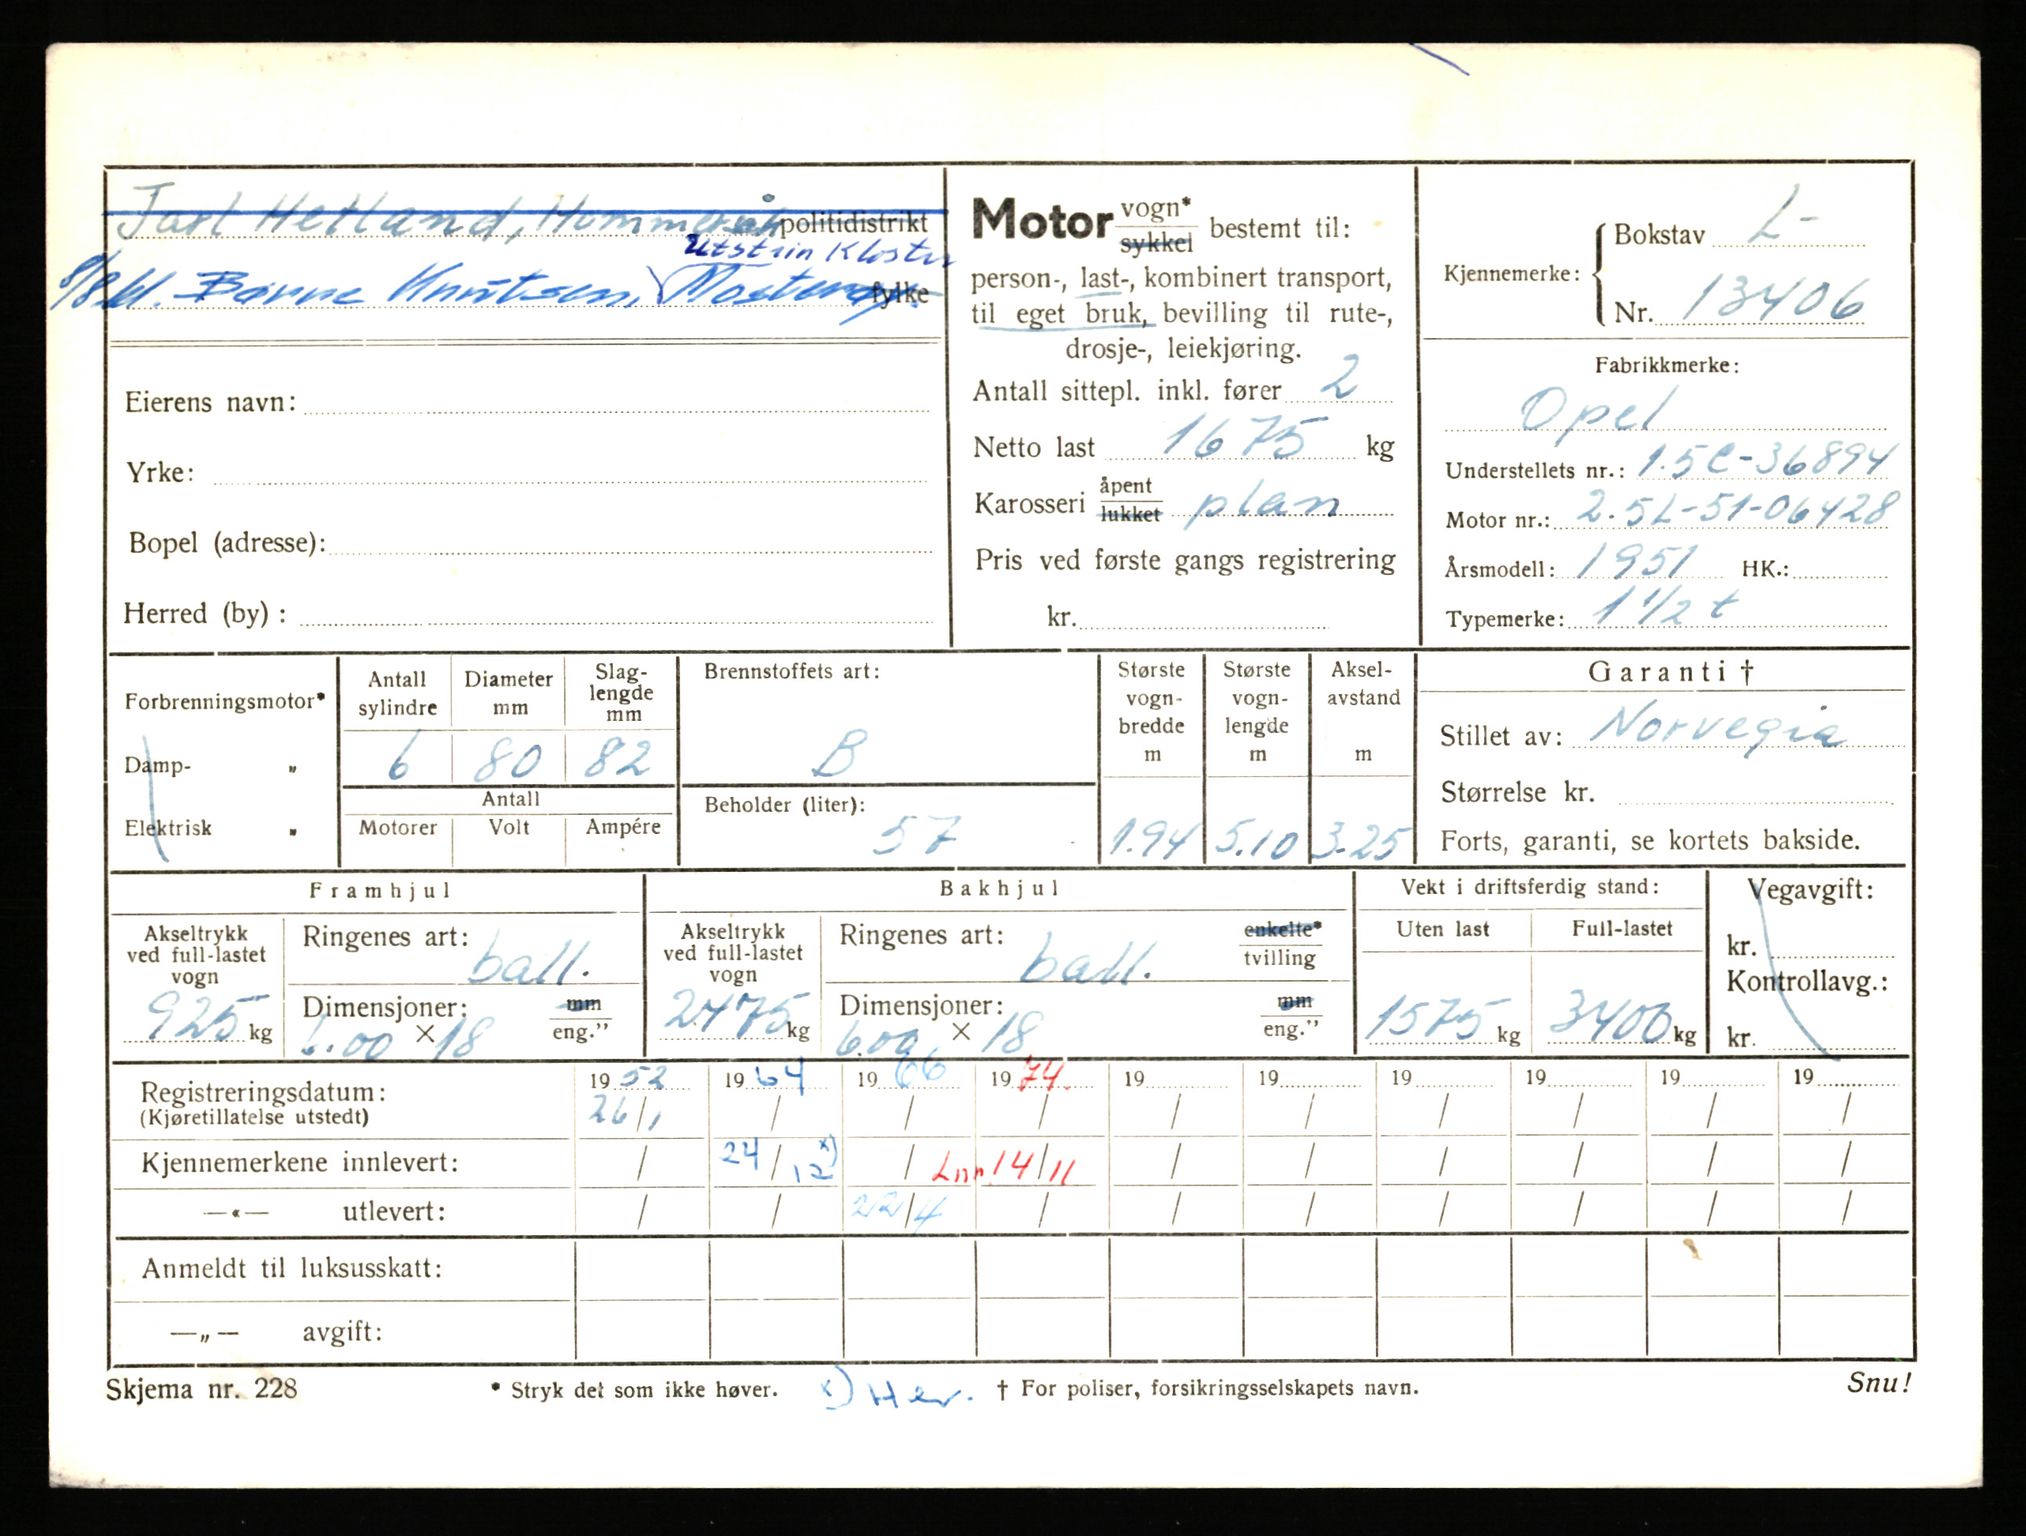 Jarl Hetland, Hommersåk politidistrikt
Utstein Kloster
Børre Knutsen, Mosterøy fylke
Eierens navn:
Yrke:
Bopel (adresse):
Herred (by) :
Motor vogn* sykkel bestemt til:
person-, last-, kombinert transport,
til eget bruk, bevilling til rute-,
drosje-, leiekjøring.
Antall sittepl. inkl. fører 2
Netto last 1675 kg
Karosseri åpent lukket plan
Pris ved første gangs registrering
kr.
Kjennemerke: Bokstav L-
Nr. 13406
Fabrikkmerke:
Opel
Understellets nr.: 1.5C-36894
Motor nr.: 2.5L-51-06428
Årsmodell: 1951 HK.:
Typemerke: 1 1/2 t
Forbrenningsmotor*
Damp- „
Elektrisk „
Antall sylindre Diameter mm Slag-lengde mm
6 80 82
Antall
Motorer Volt Ampére
Brennstoffets art:
B
Beholder (liter):
57
Største vogn-bredde m 1.94
Største vogn-lengde m 5.10
Aksel-avstand m 3.25
Garanti †
Stillet av: Norvegia
Størrelse kr.
Forts, garanti, se kortets bakside.
Framhjul
Akseltrykk ved full-lastet vogn
925 kg
Ringenes art: ball.
Dimensjoner: mm
6.00 × 18 eng.”
Bakhjul
Akseltrykk ved full-lastet vogn
2475 kg
Ringenes art: ball. enkelte* tvilling
Dimensjoner: mm
6.00 × 18 eng.”
Vekt i driftsferdig stand:
Uten last Full-lastet
1575 kg 3400 kg
Vegavgift:
kr.
Kontrollavg.:
kr.
Registreringsdatum: 1952 1964 1966 1974. 19 19 19 19 19 19
(Kjøretillatelse utstedt) 26/1 / / / / / / / / /
Kjennemerkene innlevert: / 24/12 x) / Lnr. 14/11 / / / / / /
—«— utlevert: / / 22/4 / / / / / / /
Anmeldt til luksusskatt:
—„— avgift:
Skjema nr. 228 * Stryk det som ikke høver. x) Her. † For poliser, forsikringsselskapets navn. Snu!